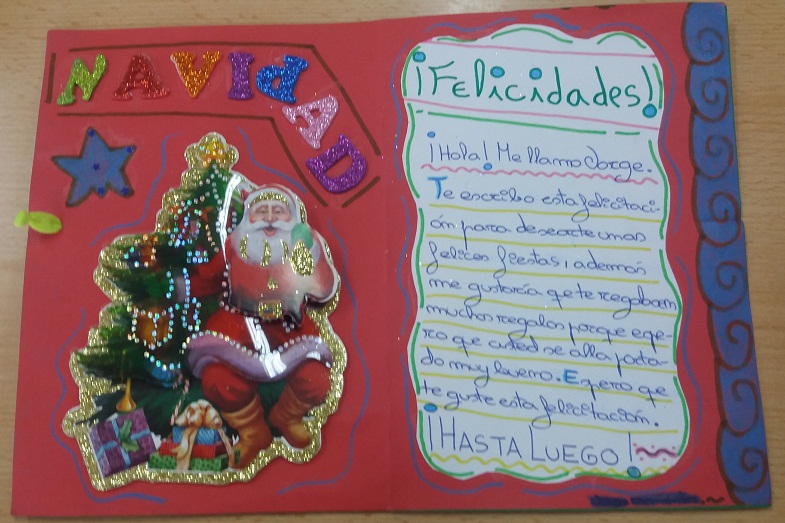 NAVIdAD
¡¡Felicidades!!
¡Hola! Me llamo Jorge.
Te escribo esta felicitaci-
ón para desearte unas
felices fiestas, además
me gustaría que te regalasen
muchos regalos porque espe-
ro que usted se alla porta-
do muy bueno. Espero que
te guste esta felicitación.
¡HASTA LUEGO!